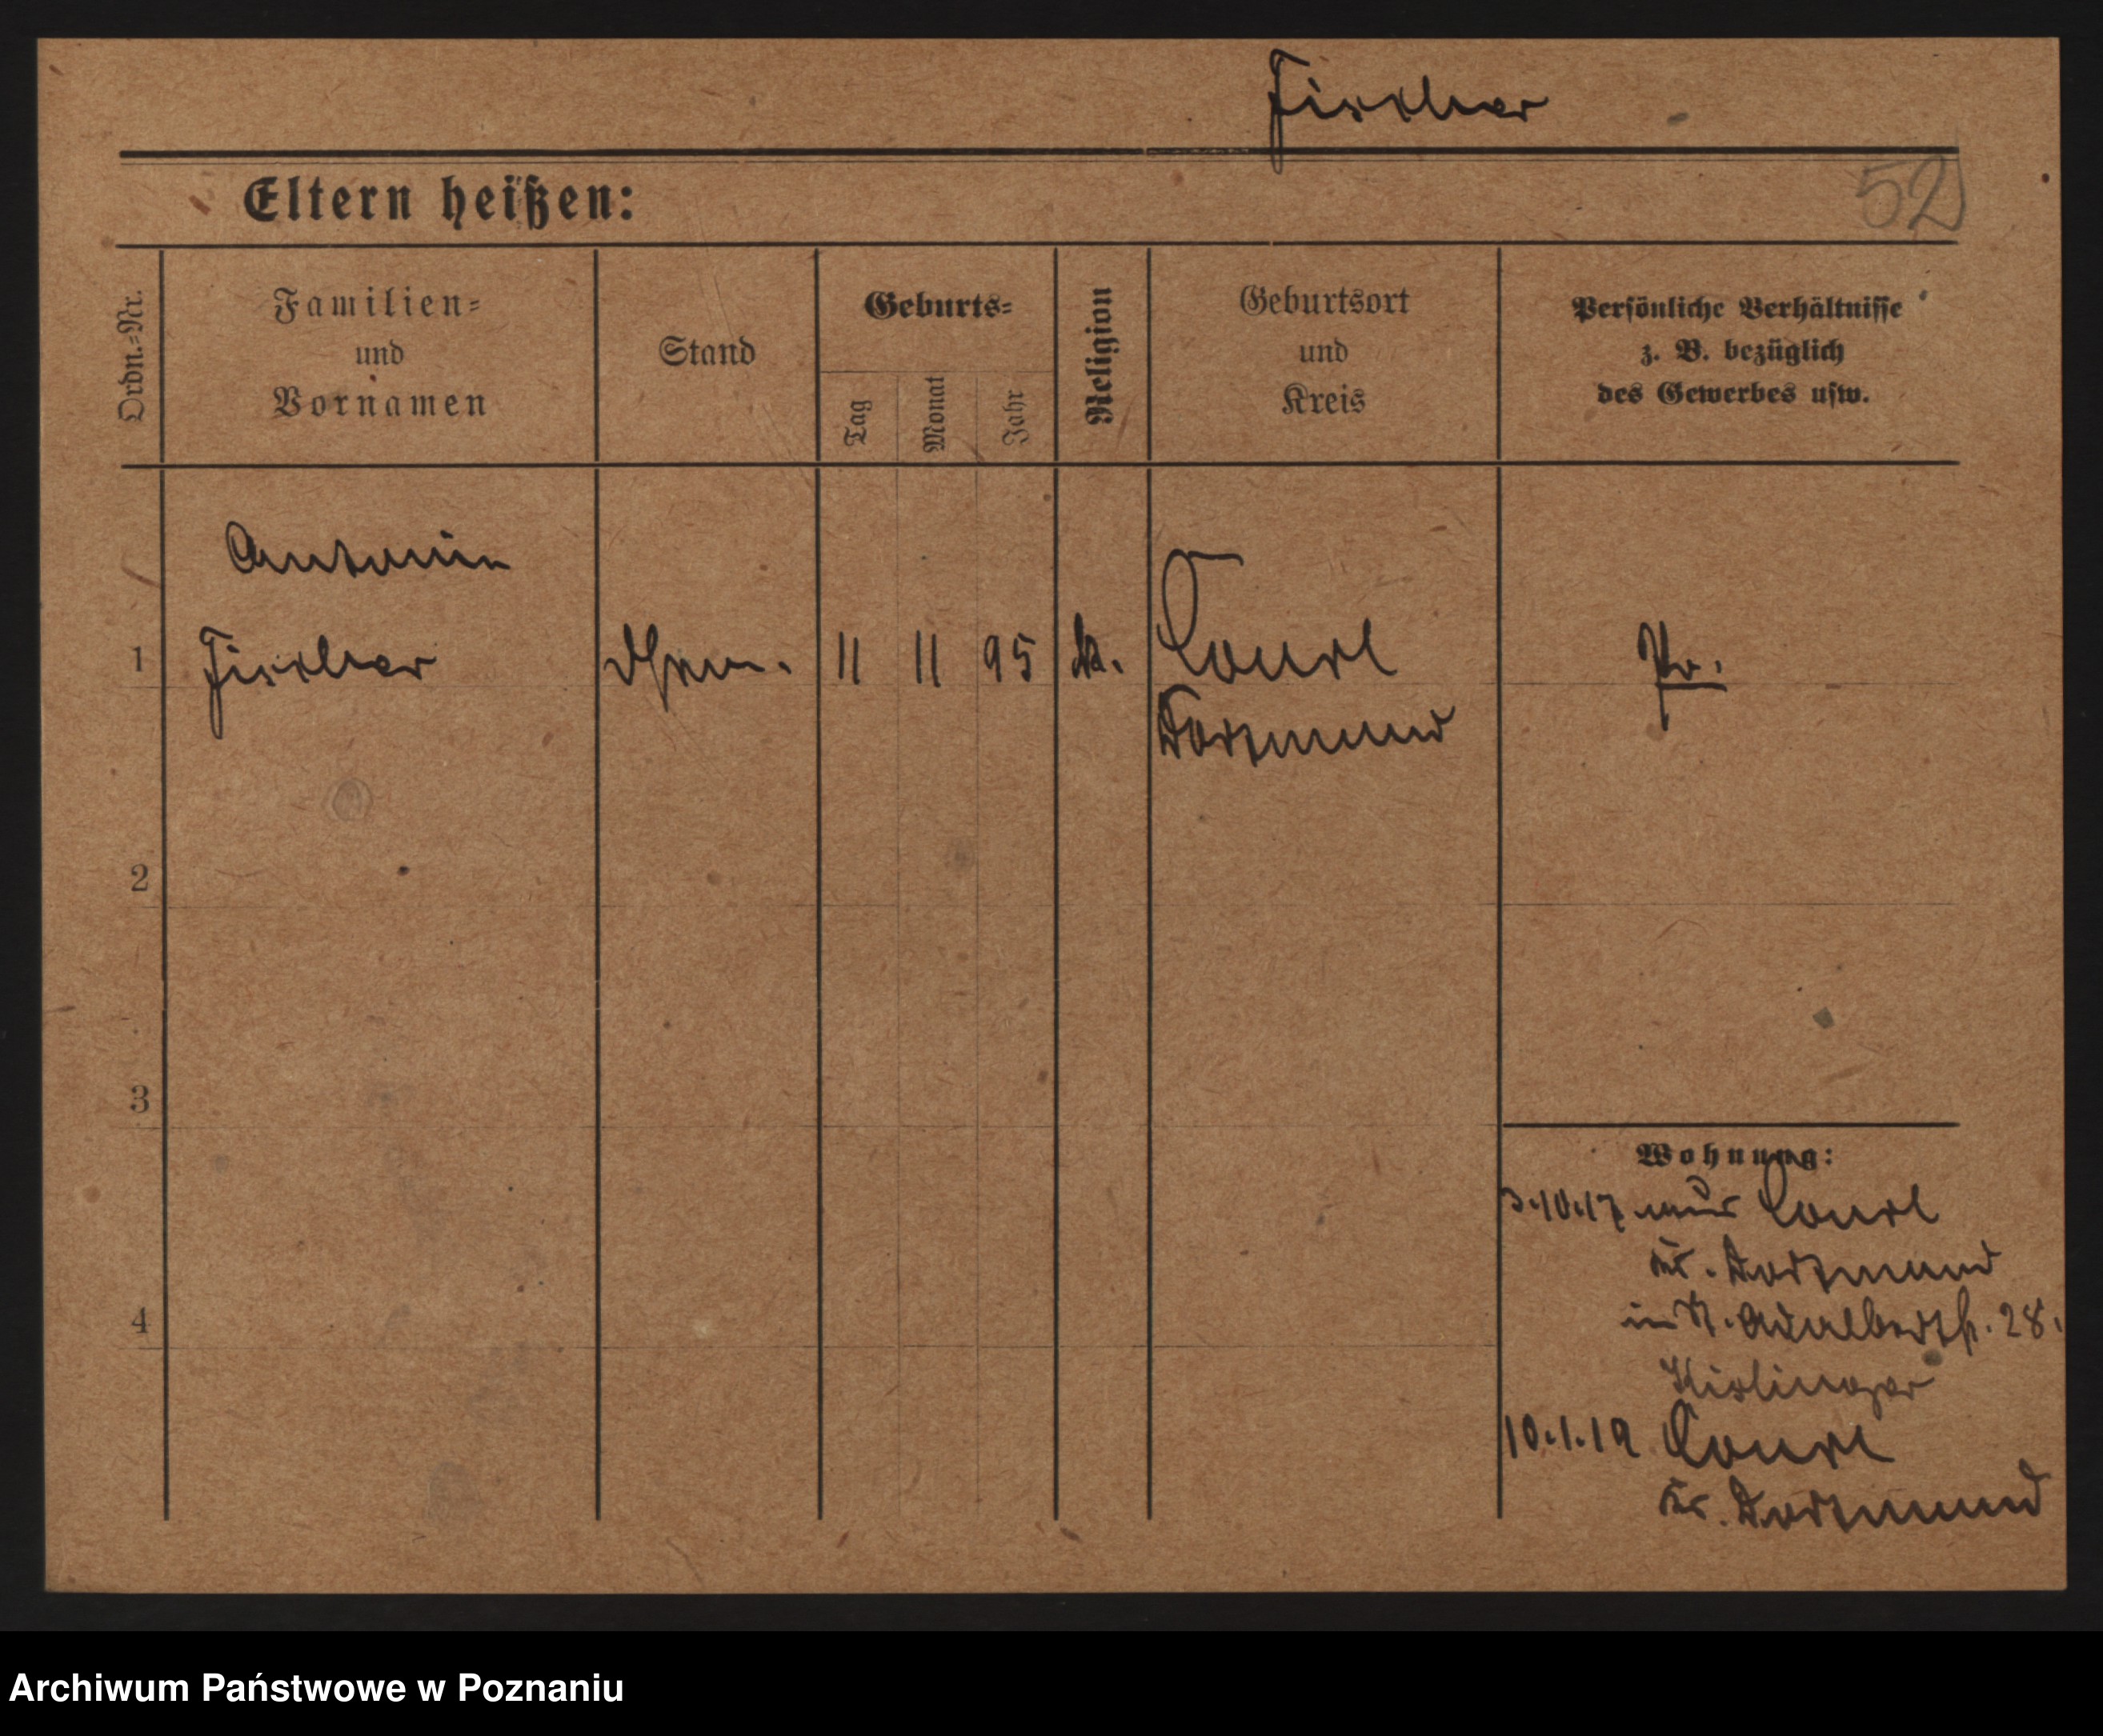 Fischer
Eltern heißen:
52
Ordn.-Nr.
Familien-
und
Vornamen
Stand
Geburts-
Tag
Monat
Jahr
Religion
Geburtsort
und
Kreis
Persönliche Verhältnisse
z. B. bezüglich
des Gewerbes usw.
Antonin
1 Fischer 11 11 95 k. Courl Pr.
Dortmund
2
3
Wohnung:
3.10.17 aus Courl
Kr. Dortmund
in N. Adalbertstr. 28.
10.1.19 Courl
4
Kr. Dortmund
Archiwum Państwowe w Poznaniu